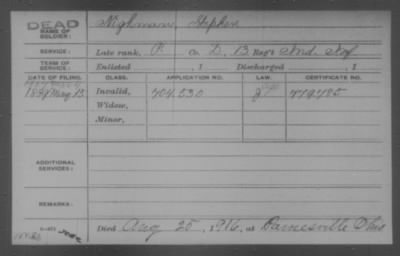 DEAD
NAME OF SOLDIER: Nighman, Stephen
SERVICE: Late rank, P. Co. D, 13 Reg't Ind. Inf.
TERM OF SERVICE: Enlisted , 1 Discharged , 1
DATE OF FILING. CLASS. APPLICATION NO. LAW. CERTIFICATE NO.
May 13 Invalid, 704.530 719785
Widow,
Minor,
ADDITIONAL SERVICES:
REMARKS:
Died Aug 25, 1916, at Barnesville Ohio